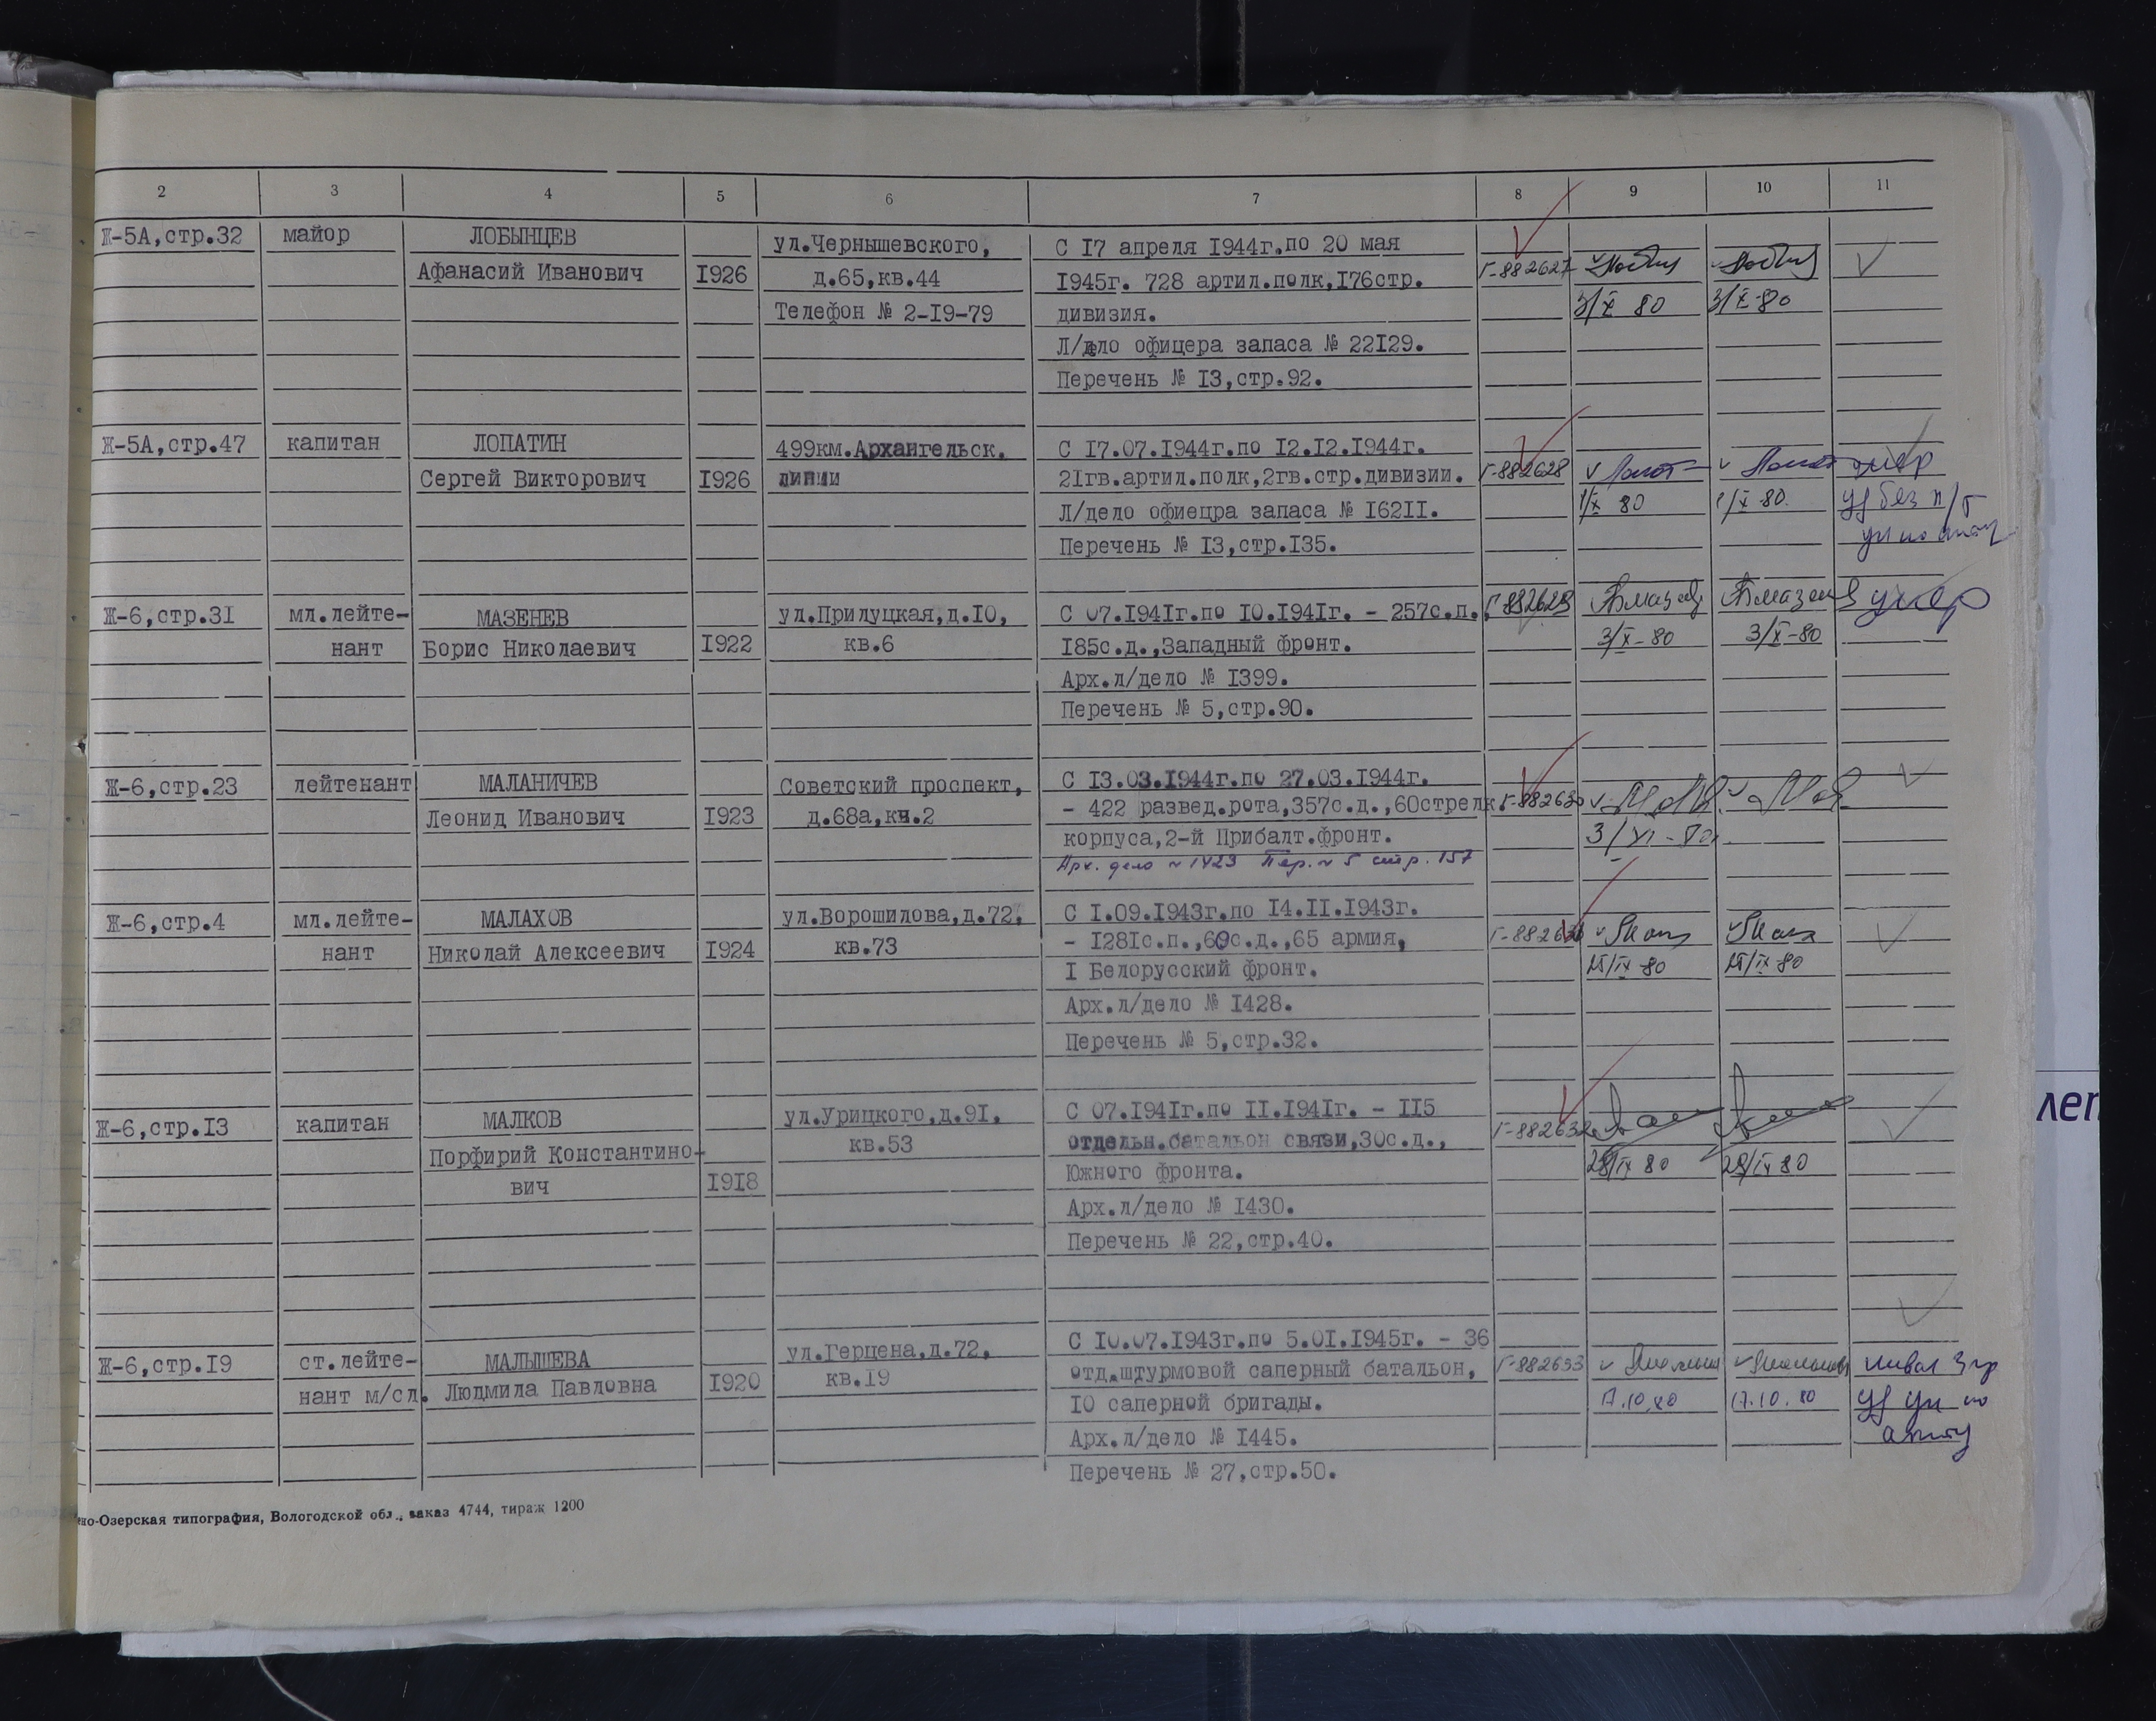 2 3 4 5 6 7 8 9 10 11
Ж-5А,стр.32 майор ЛОБЫНЦЕВ ул.Чернышевского, С I7 апреля I944г.по 20 мая
Афанасий Иванович I926 д.65,кв.44 I945г. 728 артил.полк,I76стр. Г-882627
Телефон № 2-I9-79 дивизия. 3/X 80 3/X-80
Л/дело офицера запаса № 22I29.
Перечень № I3,стр.92.
Ж-5А,стр.47 капитан ЛОПАТИН 499км.Архангельск. С I7.07.I944г.по I2.I2.I944г.
Сергей Викторович I926 линии 2Iгв.артил.полк,2гв.стр.дивизии. Г-882628 умер
Л/дело офиецра запаса № I62II. 1/X 80 1/X-80. уд без п/г
Перечень № I3,стр.I35.
Ж-6,стр.3I мл.лейте- МАЗЕНЕВ ул.Прилуцкая,д.I0, С 07.I94Iг.по I0.I94Iг. - 257с.п., Г-882629 умер
нант Борис Николаевич I922 кв.6 I85с.д.,Западный фронт. 3/X-80 3/X-80
Арх.л/дело № I399.
Перечень № 5,стр.90.
Ж-6,стр.23 лейтенант МАЛАНИЧЕВ Советский проспект, С I3.03.I944г.по 27.03.I944г.
Леонид Иванович I923 д.68а,кч.2 - 422 развед.рота,357с.д.,60стрелк. Г-882630
корпуса,2-й Прибалт.фронт. 3/XI-80
Арх. дело № 1423 Пер. № 5 стр. 157
Ж-6,стр.4 мл.лейте- МАЛАХОВ ул.Ворошилова,д.72, С I.09.I943г.по I4.II.I943г.
нант Николай Алексеевич I924 кв.73 - I28Iс.п.,60с.д.,65 армия,
I Белорусский фронт. 15/IX-80 15/IX-80
Арх.л/дело № I428.
Перечень № 5,стр.32.
Ж-6,стр.I3 капитан МАЛКОВ ул.Урицкого,д.9I, С 07.I94Iг.по II.I94Iг. - II5
Порфирий Константино- кв.53 отдельн.батальон связи,30с.д., Г-882632
вич I9I8 Южного фронта. 29/IX 80 29/IX 80
Арх.л/дело № I430.
Перечень № 22,стр.40.
Ж-6,стр.I9 ст.лейте- МАЛЫШЕВА ул.Герцена,д.72, С I0.07.I943г.по 5.0I.I945г. - 36
нант м/сл. Людмила Павловна I920 кв.I9 отд.штурмовой саперный батальон, Г-882633 инвал 3 гр
I0 саперной бригады. 17.10.80 17.10.80
Арх.л/дело № I445.
Перечень № 27,стр.50.
но-Озерская типография, Вологодской обл., заказ 4744, тираж 1200